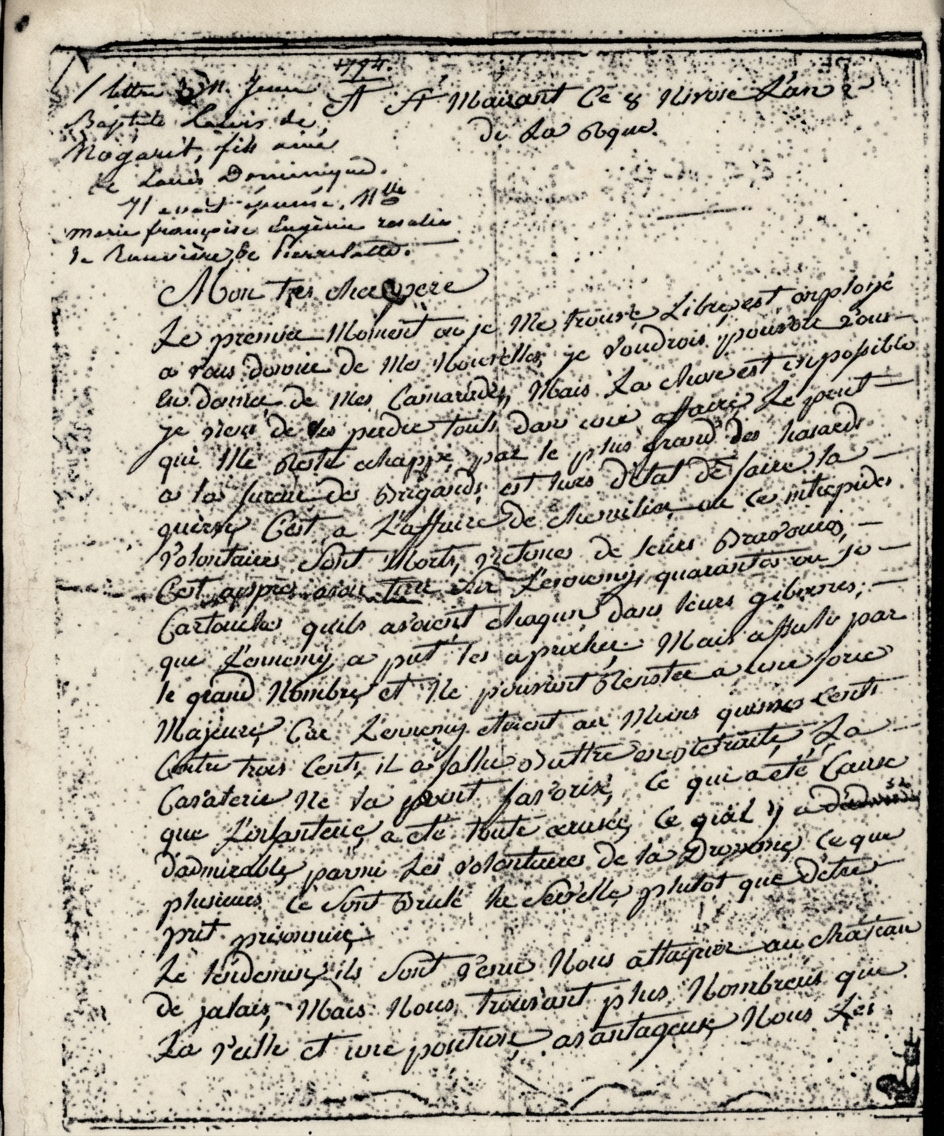 1794
1 lettre de M. Jean
Baptiste Louis de
Nogaret, fils ainé
de Louis Dominique.
Il avait épousé Mlle
marie françoise Eugènie rosalie
de de Pierrelatte.
A Mauzant Ce 8 Nivose L'an 2e
de La Rque.
Mon tres cher pere
Le premier Moment ou je Me trouve Libre, est emploÿé
a vous donner de Mes Nouvelles, je voudrois pouvoir vous
en donner de Mes Camarades, Mais La chose est impossible
je viens de les perdre touts dans une affaire, Le peut
qui Me reste echappé par le plus grand des hasards
a la fureur des Brigands, est hors d'état de faire la
guerre, C'est a L'affaire de chemilier ou ce intrepides
volontaires sont Morts, victimes de leurs Bravoures,
C'est appres avoir tiré sur L'ennemy, quarantes ou 50
Cartouches quils avoient chaqun dans leurs gibernes,
que L'ennemy a put les aprocher Mais affublé par
le grand Nombre, et Ne pouvant Resister a une force
Majeure, Car L'ennemy etoient au Moins quinse Cents
Contre trois Cents, il a fallu Battre en retraite, La
Cavalerie Ne la point favorisé, Ce qui a été Cause
que L'infanterie, a eté toute ecrasée, Ce quil y a
d'admirable, parmi Les volontaires de la Dromme, Ce que
plusieurs Ce sont Brulé la Servelle, plutot que d'étre
prit prisonnier
Le lendemin, ils sont venu Nous attaquer au chateau
de jalais, Mais Nous trouvant plus Nombreux que
La veille et une position avantageuse, Nous Les